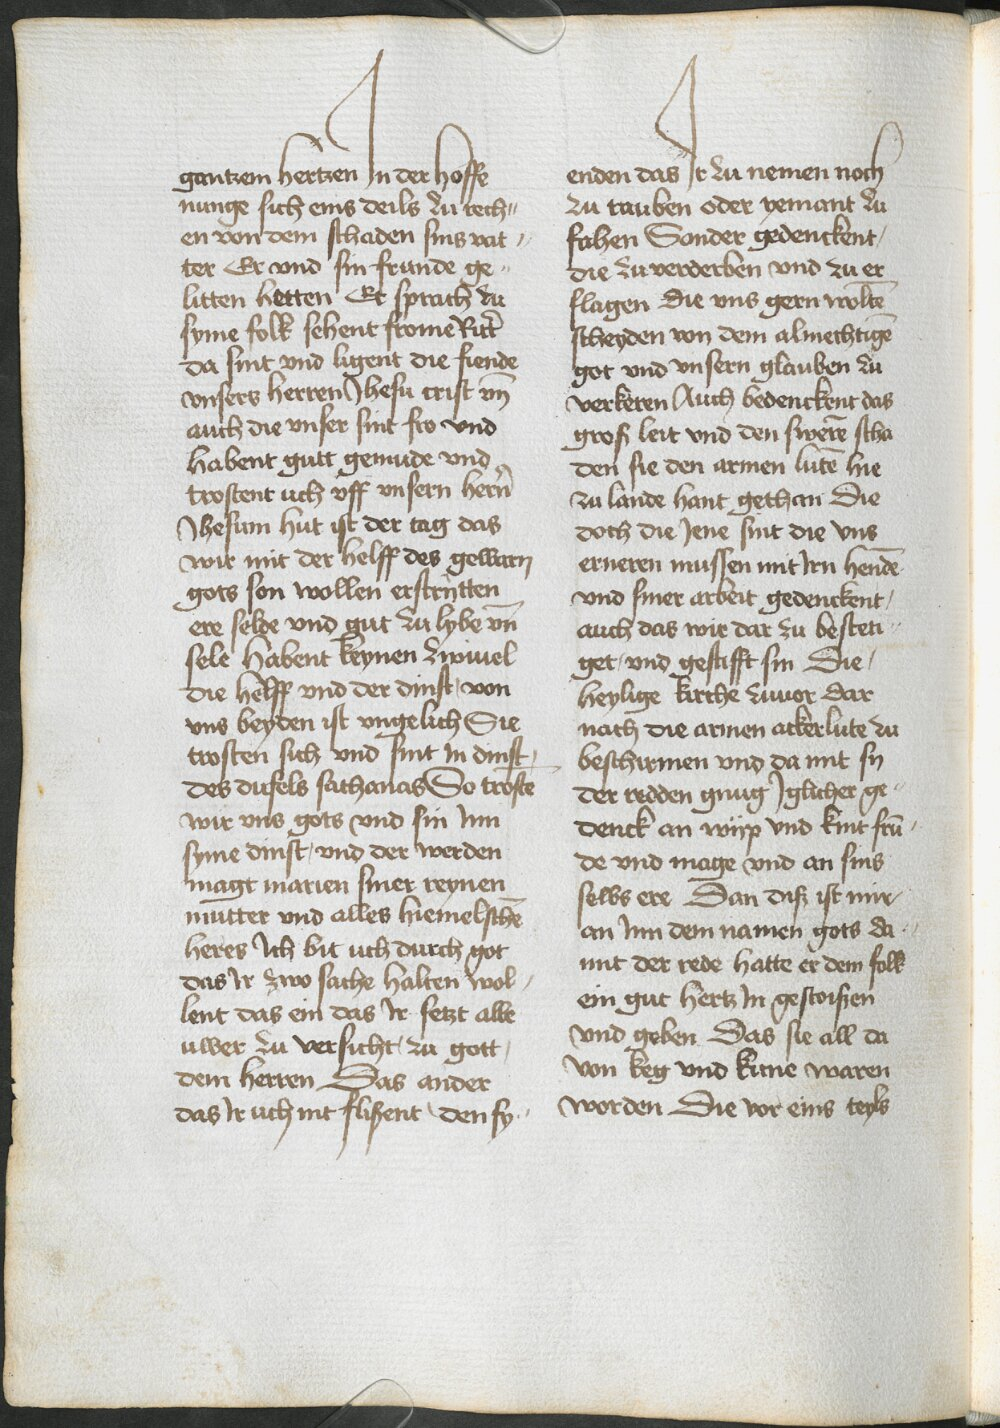 gantzem hertzen In der hoffe
nunge sich eins deils zu rech„
en von dem schaden sins vat„
ter Er vnd sin frunde ge„
litten hetten Er sprach zu
syme folk sehent frome Ritt̄
da sint vnd ligent die fiende
vnsers herren Jhesu crist vn̄
auch die vnser sint fro vnd
habent gutt gemude vnd
trostent uch vff vnsern hern̄
Jhesum hut ist der tag das
wir mit der helff des gewarn
gots son wollen erstrytten
ere selde vnd gut zu lybe vn̄
sele Habent keynen zwiuel
die helff vnd der dinst von
vns beyden ist vngelich Sie
trosten sich vnd sint In dinst
des dufels sathanas So troste
wir vns gots vnd sin Inn
syme dinst vnd der werden
magt marien siner reynen
mutter vnd alles hiemelschē
heres Ich bit uch durch got
das Ir zwo sache halten wol„
lent das ein das Ir setzt alle
uwer zu versicht zu gott
dem herren Das ander
das Ir uch nit flißent den fy„
enden das Ir zu nemen noch
zu rauben oder yemant zu
fahen Sonder gedenckent
die zu verderben vnd zu er
slagen die vns gern woltē
scheyden von dem almechtigē
got vnd vnsern glauben zu
verkeren Auch bedenckent das
groß leit vnd den swerē scha
den sie den armen lutē hie
zu lande hant gethan Die
doch die Jene sint die vns
erneren mussen mit Irn hendē
vnd siner arbeit gedenckent
auch das wir dar zu besteti„
get vnd gestifft sin Die
heylige kirche zuuor dar
nach die armen ackerlute zu
beschirmen vnd da mit sy
der redden gnug Iglicher ge„
denck an wijp vnd kint frū„
de vnd mage vnd an sins
selbs ere Dan diß ist mir
an Inn dem namen gots da
mit der rede hatte er dem folk
ein gut hertz In gestoißen
vnd geben Das sie all da
von keg vnd kune waren
worden Die vor eins teyls